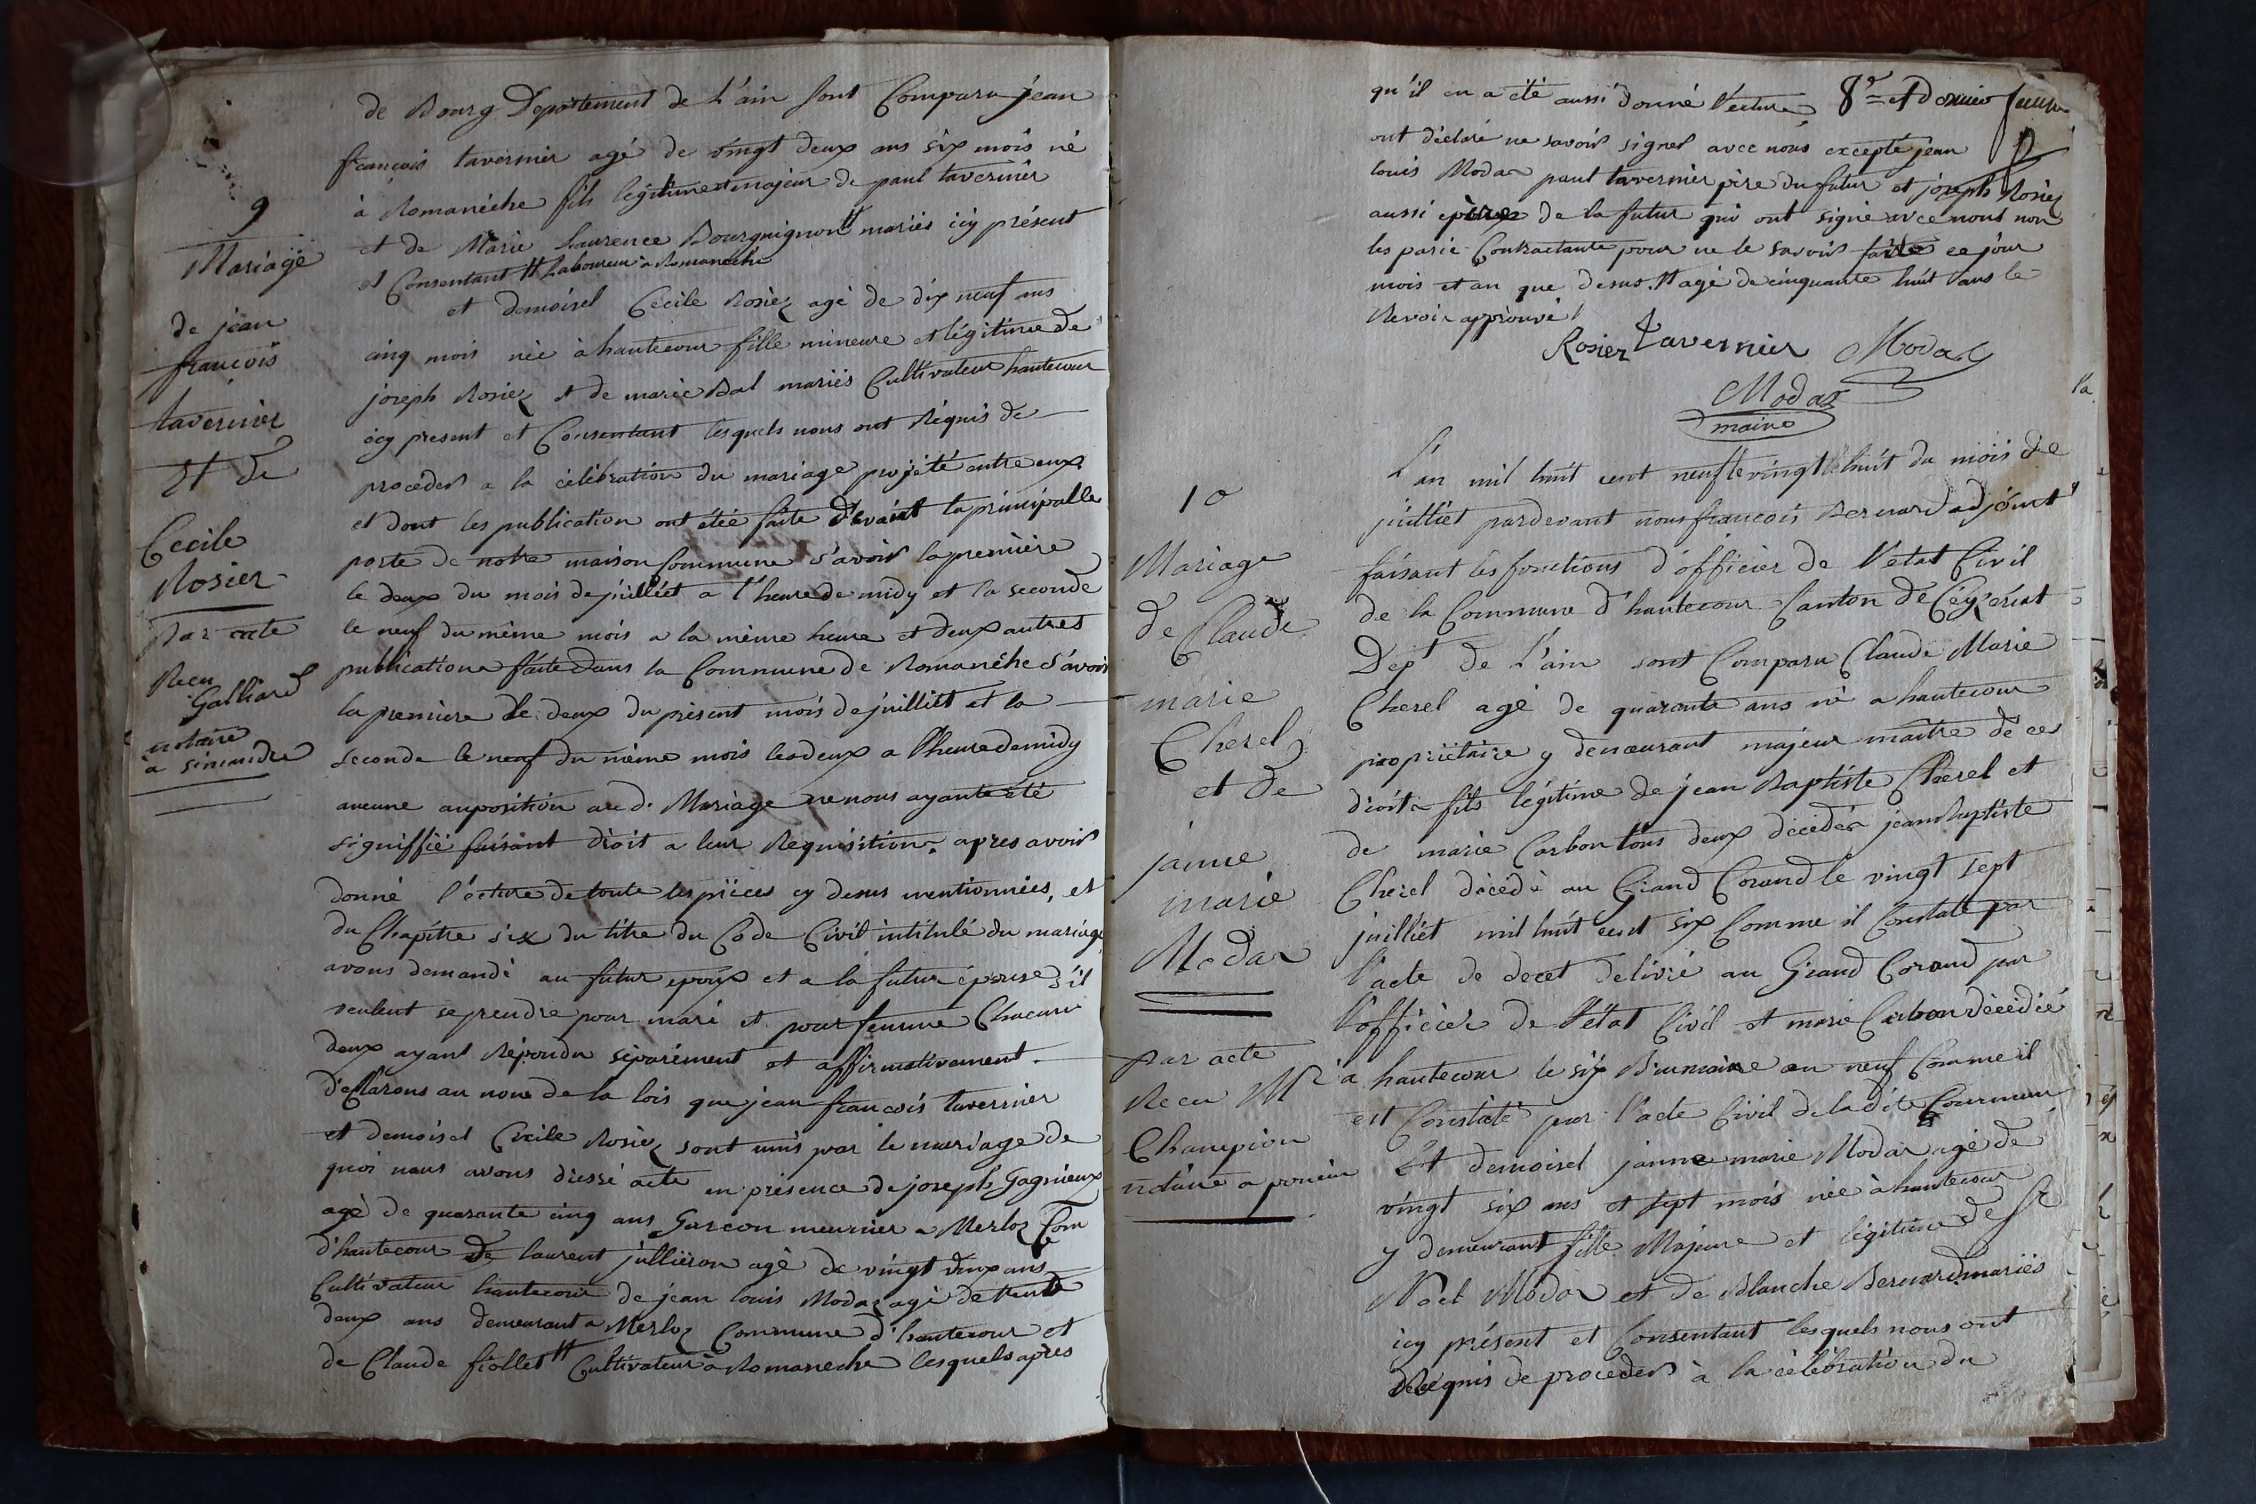 9
Mariage
de jean
francois
tavernier
Et de
Cecile
Rosier
Par acte
Recu
Galliard
notaire
à simandre
de Bourg Departement de L'ain sont Comparu jean
francois tavernier agé de vingt deux ans six mois né
à Romanéche fils légitime et majeur de paul tavernier
et de Marie Laurence Bourguignon # mariés icy présent
et Consentant # Laboureur à Romaneche
et demoisel Cecile Rosier agé de dix neuf ans
cinq mois née à hautecour fille mineure et légitime de
joseph Rosier et de marie Bal mariés Cultivateur hautecour
icy present et Consentant lesquels nous ont Réquis de
proceder a la célébration du mariage projété entre eux
et dont les publication ont étée faite devant la principalle
porte de notre maison Commune s'avoir la première
le deux du mois de juilliét a l'heure de midy et la seconde
le neuf du même mois a la même heure et deux autres
publication faite dans la Commune de Romanéche s'avoir
la premiere le deux du présent mois de juilliét et la
seconde le neuf du même mois les deux a l'heure de midy
aucune auposition au di Mariage ne nous ayante été
signiffié faisant droit a leur Requisition. apres avoir
donné l'écture de toute les piéces cy desus mentionnées, et
du Chapitre six du titre du Code Civil intitulé du mariage
avons demandé au futur epoux et a la futur épouse s'il
veulent se prendre pour mari et pour femme Chacun
deux ayant Répondu séparément et affirmativement
déClarons au nom de la lois que jean francois tavernier
et demoisel Cécile Rosier sont unis par le mariage de
quoi nous avons dressé acte en présence de joseph Gagnieux
agé de quarante cinq ans Garcon meunier a Merloz Com
d'hautecour de laurent jullieron agé de vingt deux ans
Cultivateur hautecour de jean louis Modaz agé de trente
deux ans demeurant a Merloz Commune d'hautecour et
de Claude fiollet # Cultivateur à Romaneche lesquels après
qu'il en a été aussi donné l'écture 8e et Dernier
ont déclaré ne savoir signer avec nous excepté jean
louis Modaz paul tavernier père du futur et joseph Rosier
aussi père de la futur qui ont signé avec nous non
les parie Contractante pour ne le savoir faire ce jour
mois et an que desus. # agé de cinquante huit ans le
Renvoi approuvé
Rosier tavernier Modaz
Modaz
maire
10
Mariage
de Claude
marie
Cherel
et de
janne
marie
Modaz
par acte
Recu Mr
Champion
notaire a poncin
L'an mil huit cent neuf le vingt huit du mois de
juilliét pardevant nous francois Bernard adjoint
faisant les fonctions d'officier de l'etat Civil
de la Commune d'hautecour Canton de Ceyzériat
Dept de L'ain sont Comparu Claude Marie
Cherel agé de quarante ans né a hautecour
propriétaire y demeurant majeur maître de ces
droits fils légitime de jean Baptiste Cherel et
de marie Carbon tous deux décédés jean Baptiste
Cherel décédé au Grand Corand le vingt sept
juilliét mil huit cent six Comme il Constate par
l'acte de decet délivré au Grand Corand par
l'officier de l'état Civil et marie Carbon décédée
a hautecour le six Brumaire an neuf Comme il
est Constaté par l'acte Civil de la dite Commune
Et demoisel janne marie Modaz agé de
vingt six ans et sept mois née à hautecour
y demeurant fille Majeure et légitime de Sr
Noel Modaz et de Blanche Bernard mariés
icy présent et Consentant lesquels nous ont
Réquis de proceder à la célébration du